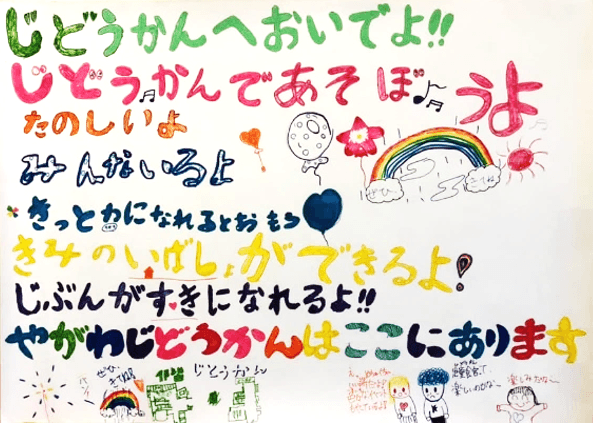 じどうかんへおいでよ!!
じどうかんであそぼ♪うよ
たのしいよ
みんないるよ
ぜひ
きてね
きっと力になれるとおもう
きみのいばしょができるよ!
じぶんがすきになれるよ!!
やがわじどうかんはここにあります
じどうかん
楽しみだな〜